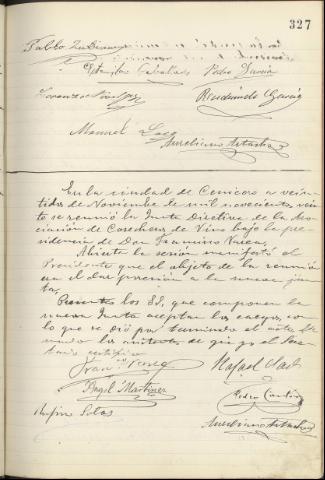 327
Pablo
Estanislao Caballero Pedro García
Lorenzo
Recaredo García
Manuel
Aureliano
En la ciudad de Cenicero a vein-
tidos de Noviembre de mil novecientos vein-
te se reunió la Junta Directiva de la Aso-
ciación de Cosecheros de Vino bajo la pre-
sidencia de Don
Abierta la sesión manifestó el
Presidente que el objeto de la reunión
era el dar posesión a la nueva jun-
ta.
los SS. que componen la
nueva Junta aceptan los cargos, con
lo que se dió por terminado el acto fir-
mando los asistentes de que yo el Secre-
tario certifico
Rafael
Angel Martinez
Pedro
Rufino
Aureliano